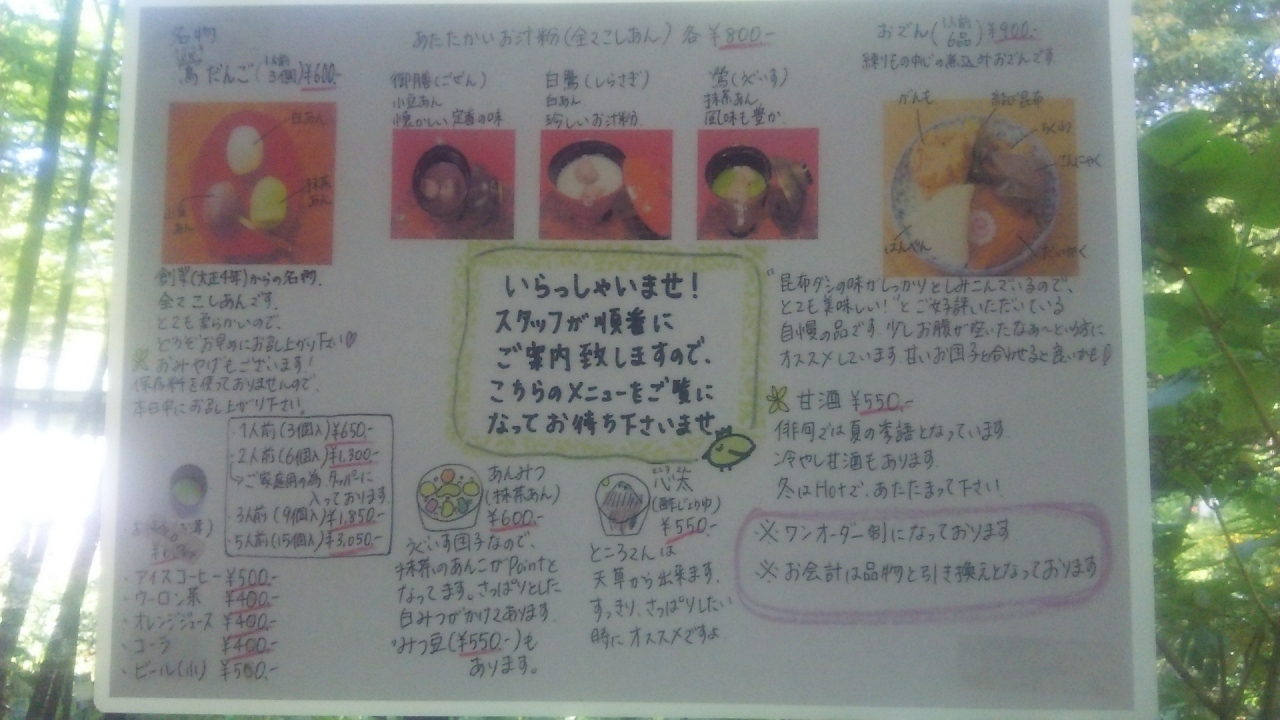 名物
鶯だんご(1人前 3個)¥600-
白あん
抹茶あん
創業(大正4年)からの名物。
全てこしあんです。
とても柔らかいので、
どうぞお早めにお召し上がり下さい
※おみやげもございます!
保存料を使っておりませんので、
本日中にお召し上がり下さい。
・1人前(3個入)¥650-
・2人前(6個入)¥1,300-
→ご家庭用の為、タッパーに
入っております
・3人前(9個入)¥1,850-
・5人前(15個入)¥3,050-
・アイスコーヒー ¥500-
・ウーロン茶 ¥400-
・オレンジジュース ¥400-
・コーラ ¥400-
・ビール(小) ¥500-
あたたかいお汁粉(全てこしあん) 各¥800-
御膳(ごぜん)
小豆あん
懐かしい定番の味
白鷺(しらさぎ)
白あん
珍しいお汁粉
鶯(うぐいす)
抹茶あん
風味も豊か
いらっしゃいませ!
スタッフが順番に
ご案内致しますので、
こちらのメニューをご覧に
なってお待ち下さいませ
あんみつ
(抹茶あん)
¥600-
うぐいす団子なので、
抹茶のあんこがPointと
なってます。さっぱりとした
白みつがかけてあります。
みつ豆(¥550-)も
あります。
ところてん
心太
(酢じょうゆ)
¥550-
ところてんは
天草から出来ます。
すっきり、さっぱりしたい
時にオススメですよ
おでん(1人前 6品)¥900-
練りもの中心の煮込みおでんです
がんも
結び昆布
ちくわ
こんにゃく
はんぺん
"昆布ダシの味がしっかりとしみこんでいるので、
とても美味しい!"とご好評いただいている
自慢の品です 少しお腹が空いたなぁ〜という方に
オススメしています 甘いお団子と合わせると良いかも
甘酒 ¥550-
俳句では夏の季語となっています
冷やし甘酒もあります。
冬はHotで、あたたまって下さい
※ワンオーダー制になっております
※お会計は品物と引き換えとなっております